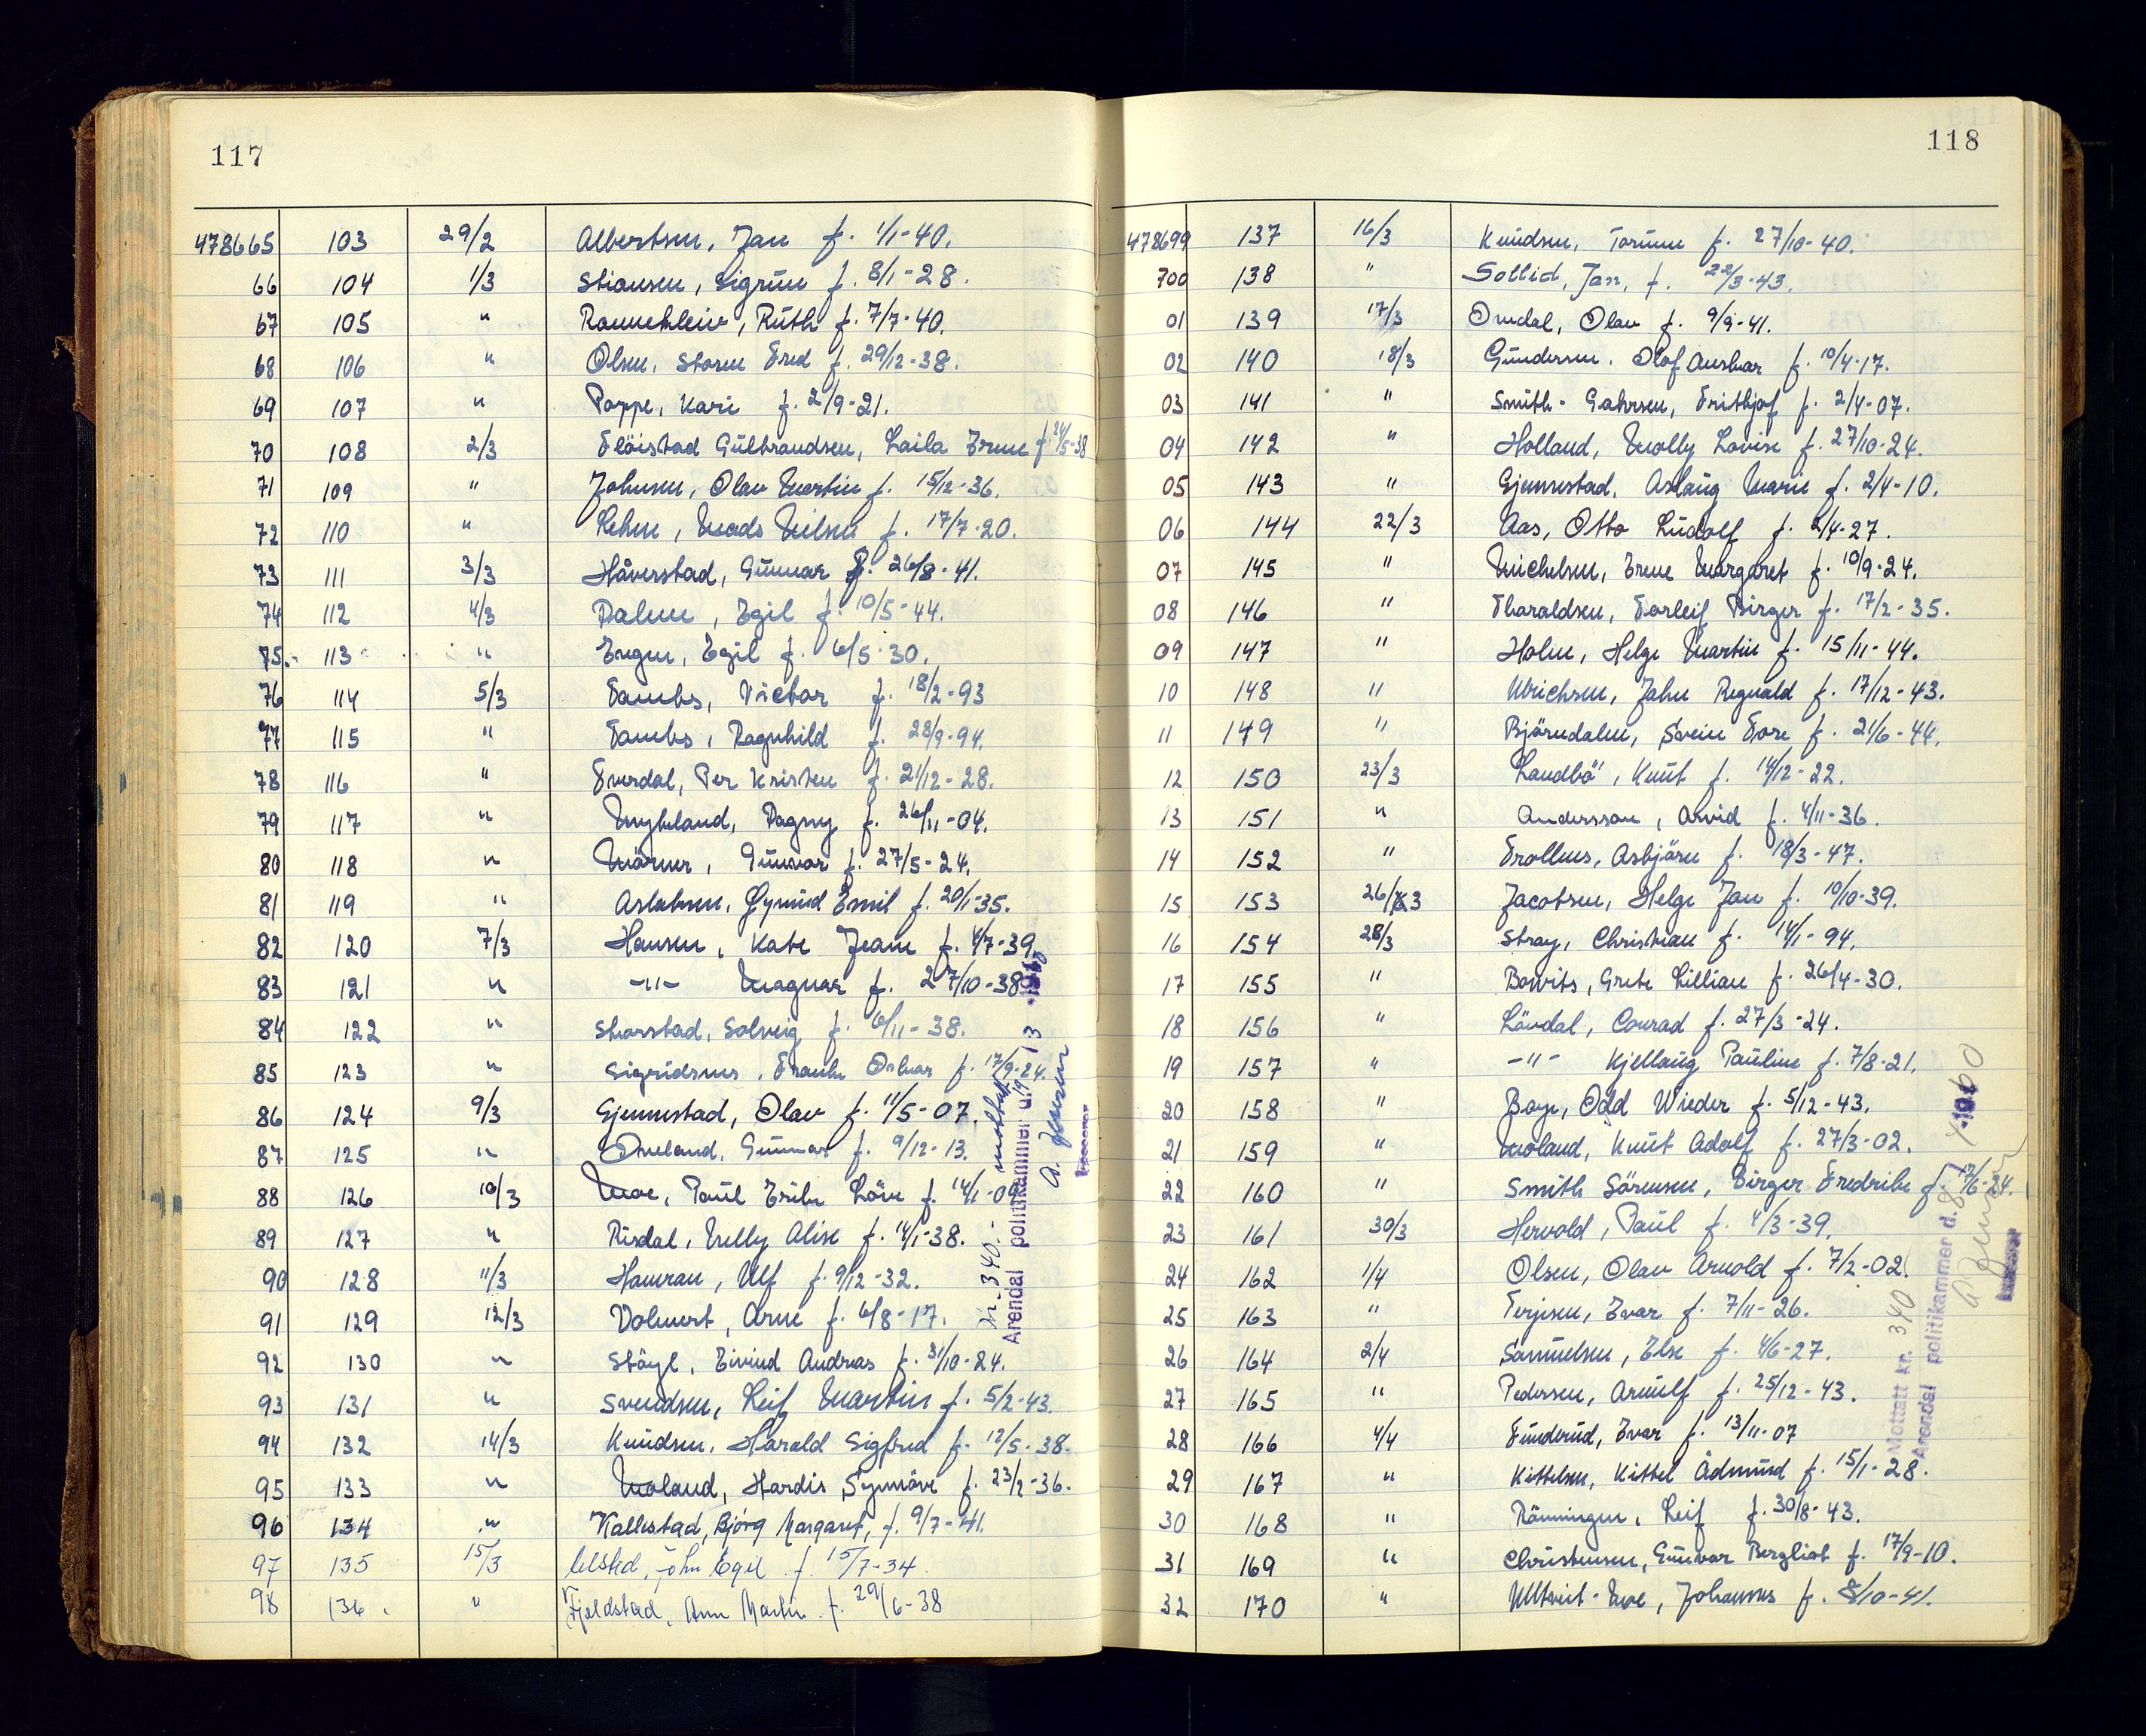 117
478665 103 29/2 Albertsen, Jan f. 1/1-40.
66 104 1/3 Stiansen, Sigrun f. 8/1-28.
67 105 " Rannekleiv, Ruth f. 7/7-40.
68 106 " Olsen, Storm Fred f. 29/12-38.
69 107 " Poppe, Kari f. 2/9-21.
70 108 2/3 Flöistad Gulbrandsen, Laila Irene f. 24/5-38
71 109 " Johnsen, Olav Martin f. 15/12-36.
72 110 " Lehne, Mads Nilsen f. 17/7-20.
73 111 3/3 Håverstad, Gunnar f. 26/8-41.
74 112 4/3 Palme, Egil f. 10/5-44.
75. 113 " Engen, Egil f. 6/5-30.
76 114 5/3 Tambs, Victor f. 18/2-93
77 115 " Tambs, Ragnhild f. 28/9-94.
78 116 " Tverdal, Per Kristen f. 21/12-28.
79 117 " Myheland, Dagny f. 26/11-04.
80 118 " Mörner, Gunvor f. 27/5-24.
81 119 " Aslaksen, Øymund Emil f. 20/1-35.
82 120 7/3 Hansen, Kate Jeane f. 4/7-39
83 121 " -"- Magnar f. 27/10-38
84 122 " Skarstad, Solveig f. 6/11-38.
85 123 " Sigridsnes, Frank Oskar f. 17/9-24.
86 124 9/3 Gjennestad, Olav f. 11/5-07.
87 125 " Omeland, Gunnar f. 9/12-13.
88 126 10/3 Moe, Paul Erik Löv f. 14/1-09
89 127 " Risdal, Nelly Alise f. 14/1-38.
90 128 11/3 Hamran, Ulf f. 9/12-32.
91 129 12/3 Volmert, Arne f. 6/8-17.
92 130 " Stöyl, Eivind Andreas f. 31/10-24.
93 131 " Svendsen, Leif Martin f. 5/2-43.
94 132 14/3 Knudsen, Harald Sigfred f. 12/5-38.
95 133 " Moland, Hardis Synnöve f. 23/2-36.
96 134 " Kallestad, Bjørg Margaret, f. 9/7-41.
97 135 15/3 Ulstad, John Egil f. 15/7-34
98 136. " Fjeldstad, Ann Martin f. 29/6-38
kr. 340.- mottatt
Arendal politikammer d. 19/3
118
478699 137 16/3 Knudsen, Torunn f. 27/10-40.
700 138 " Sollid, Jan, f. 22/3-43.
01 139 17/3 Omdal, Olav f. 9/9-41.
02 140 18/3 Gundersen. Olof Anskar f. 10/4-17.
03 141 " Smith-Gahrsen, Frithjof f. 2/4-07.
04 142 " Holland, Molly Lovise f. 27/10-24.
05 143 " Gjennestad, Aslaug Marie f. 2/4-10.
06 144 22/3 Aas, Otto Ludolf f. 2/4-27.
07 145 " Michelsen, Irene Margaret f. 10/9-24.
08 146 " Tharaldsen, Torleif Birger f. 17/2-35.
09 147 " Holm, Helge Martin f. 15/11-44.
10 148 " Ulrichsen, John Reguald f. 17/12-43.
11 149 " Björndalen, Svein Tore f. 21/6-44.
12 150 23/3 Landbö, Knut f. 14/12-22.
13 151 " Andersson, Arvid f. 4/11-36.
14 152 " Trollnes, Asbjörn f. 18/3-47.
15 153 26/3 Jacobsen, Helge Jan f. 10/10-39.
16 154 28/3 Stray, Christian f. 14/1-94.
17 155 " Bowits, Grete Lillian f. 26/4-30.
18 156 " Lövdal, Conrad f. 27/3-24.
19 157 " -"- Kjellaug Pauline f. 7/8-21.
20 158 " Boye, Odd Wieder f. 5/12-43.
21 159 " Moland, Knut Adolf f. 27/3-02.
22 160 " Smith Sörensen, Birger Fredrik f. 17/6-24.
23 161 30/3 Hervold, Paul f. 4/3-39.
24 162 1/4 Olsen, Olav Arnold f. 7/2-02.
25 163 " Terjesen, Ivar f. 7/11-26.
26 164 2/4 Samuelsen, Else f. 4/6-27.
27 165 " Pedersen, Arnulf f. 25/12-43.
28 166 4/4 Tunderud, Ivar f. 13/11-07
29 167 " Kittelsen, Kittel Ådmund f. 15/1-28.
30 168 " Rönningen, Leif f. 30/8-43.
31 169 " Christensen, Gunvor Bergliot f. 17/9-10.
32 170 " Ulltveit-Moe, Johannes f. 8/10-41.
Mottatt kr. 340
Arendal politikammer d. 8/4 1960